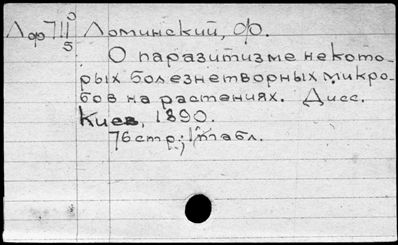 Лоф711 0/5 Ломинский, Ф.
О паразитизме некото-
рых болезнетворных микро-
бов на растениях. Дисс.
Киев, 1890.
76 стр.; табл.